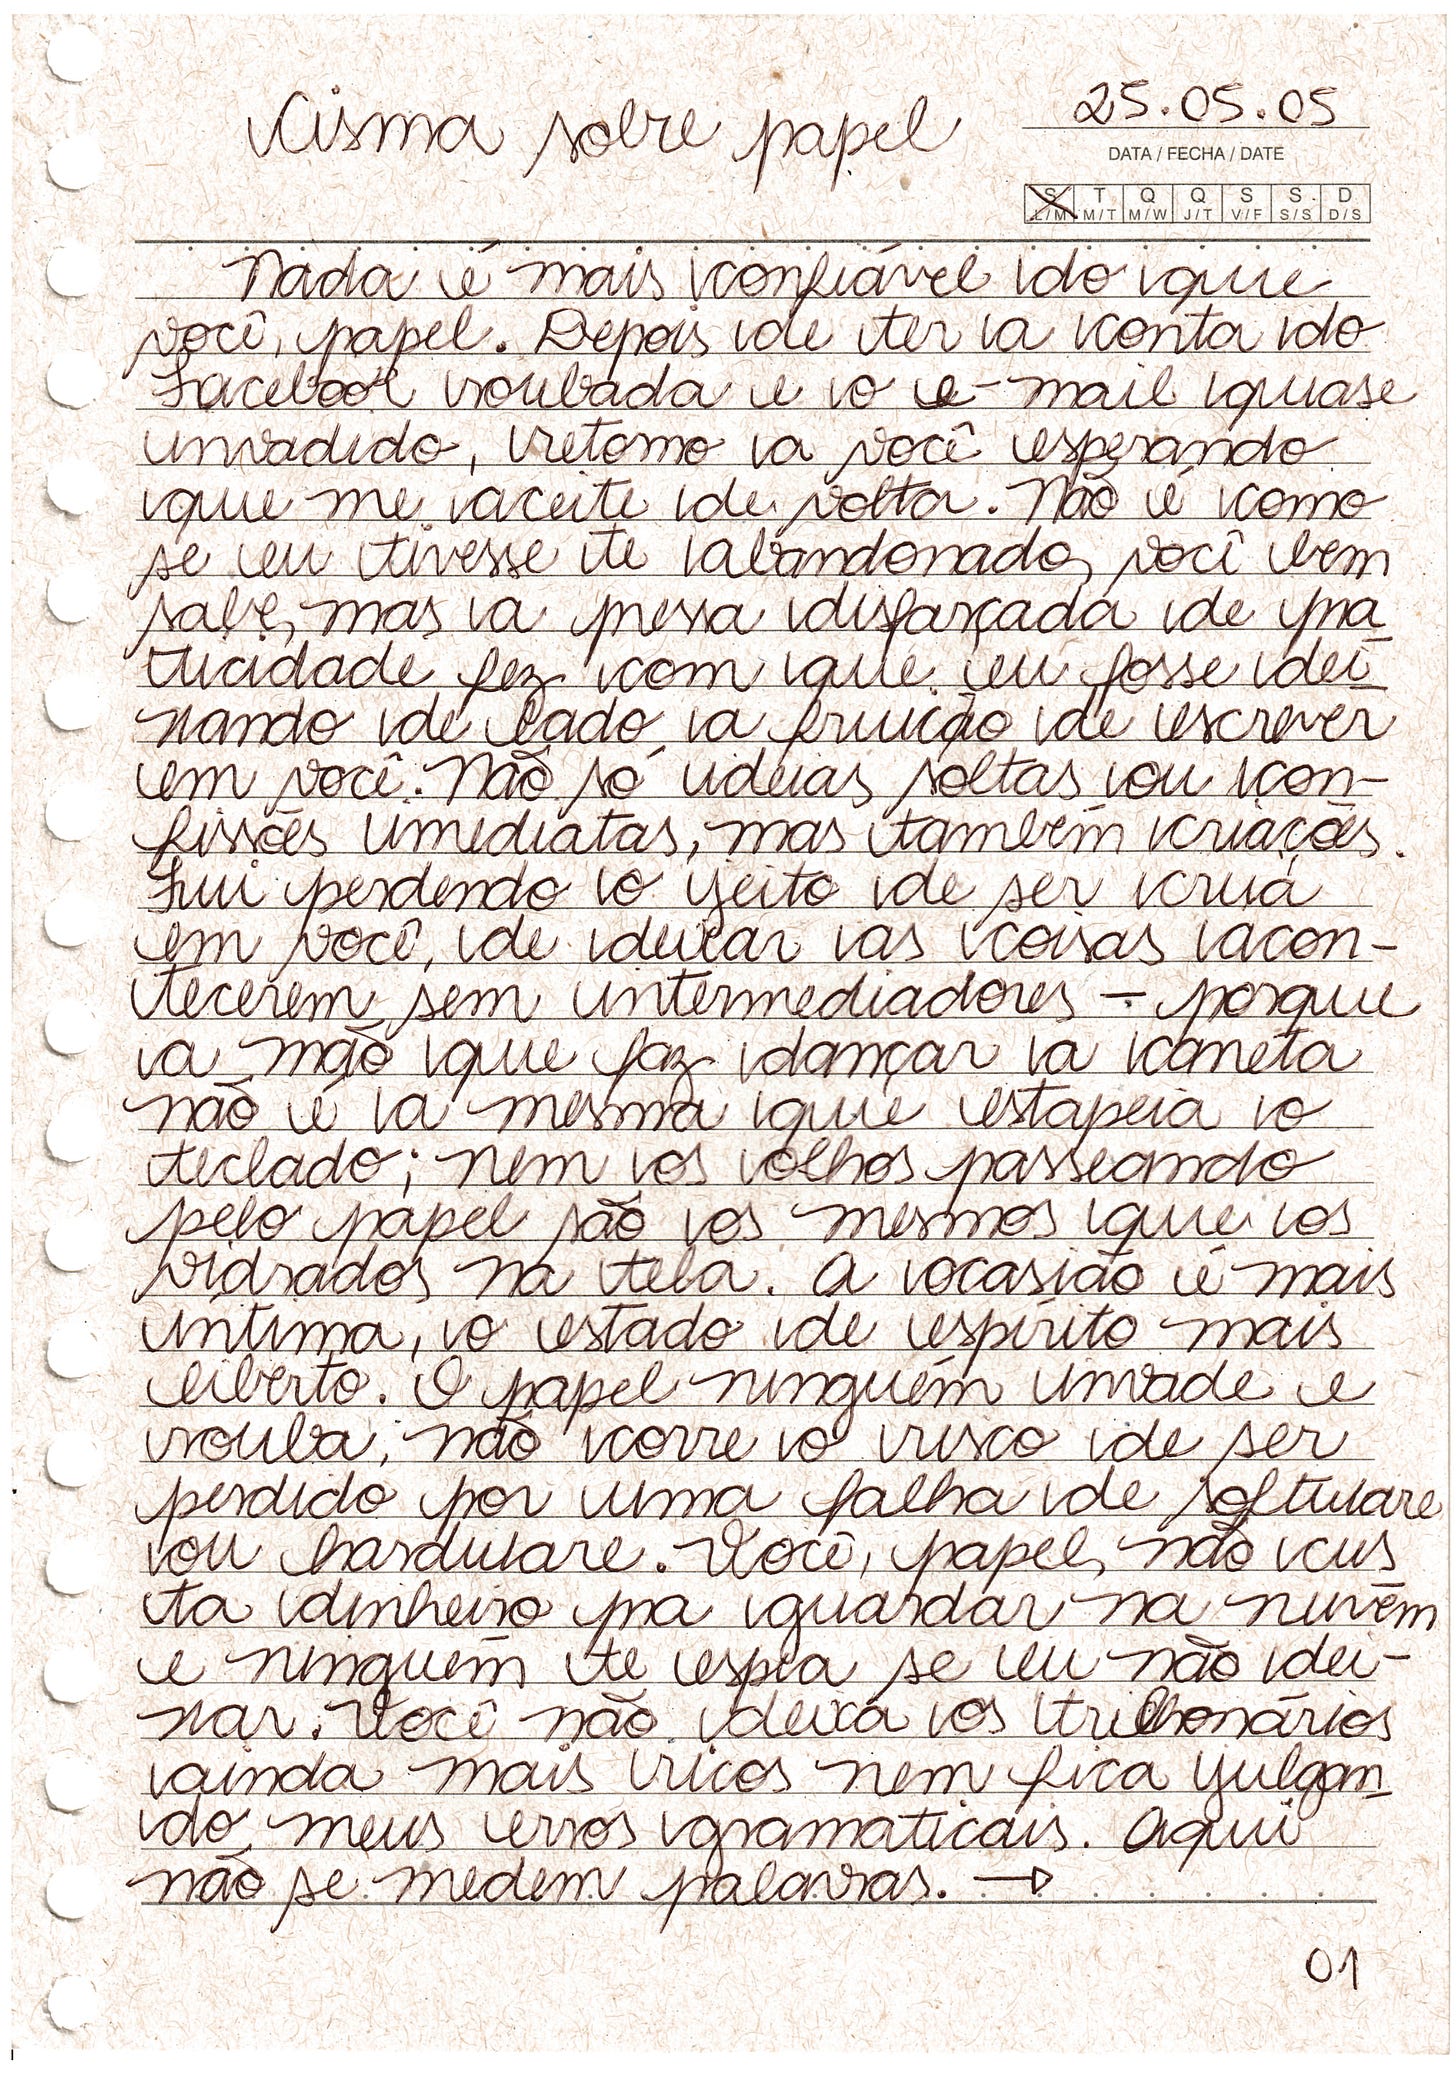 Cisma sobre papel
25.05.05
DATA / FECHA / DATE
S T Q Q S S D
L/M M/T M/W J/T V/F S/S D/S
Nada é mais confiável do que
você, papel. Depois de ter a conta do
Facebook roubada e o e-mail quase
invadido, retorno a você esperando
que me aceite de volta. Não é como
se eu tivesse te abandonado, você bem
sabe, mas a pressa disfarçada de pra
ticidade fez com que eu fosse dei
xando de lado a fruição de escrever
em você. Não só ideias soltas ou con-
fissões imediatas, mas também criações.
Fui perdendo o jeito de ser crua
em você, de deixar as coisas acon-
tecerem sem intermediadores – porque
a mão que faz dançar a caneta
não é a mesma que estapeia o
teclado; nem os olhos passeando
pelo papel são os mesmos que os
vidrados na tela. A ocasião é mais
íntima, o estado de espírito mais
liberto. O papel ninguém invade e
rouba, não corre o risco de ser
perdido por uma falha de software
ou hardware. Você, papel, não cus
ta dinheiro pra guardar na nuvem
e ninguém te espia se eu não dei-
xar. Você não deixa os trilhonários
ainda mais ricos nem fica julgan
do meus erros gramaticais. Aqui
não se medem palavras. →
01